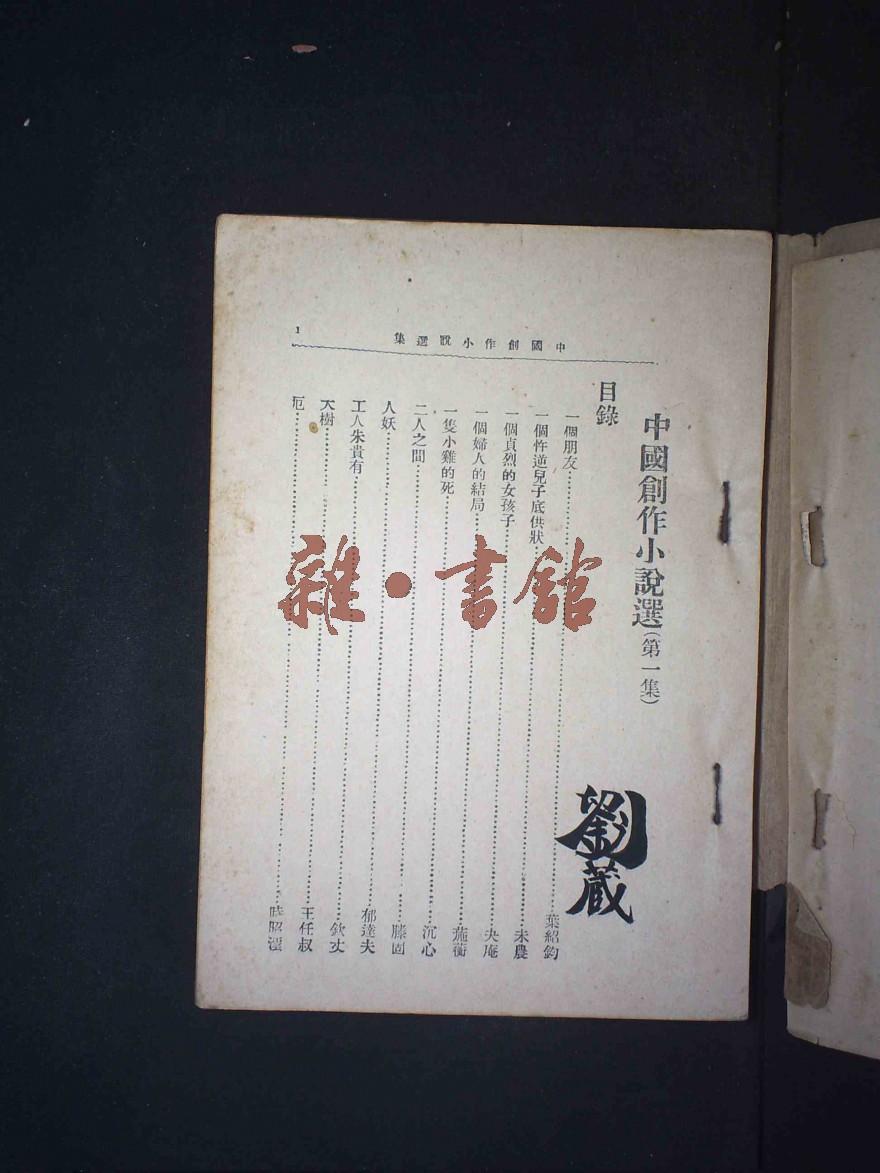 中國創作小說選集
1
中國創作小說選（第一集）
目錄
一個朋友……葉紹鈞
一個忤逆兒子底供狀……未農
一個貞烈的女孩子……央庵
一個婦人的結局……
一隻小雞的死……沉心
二人之間……滕固
人妖……郁達夫
工人朱貴有……欽文
大樹……王任叔
厄……
劉藏
雜·書館